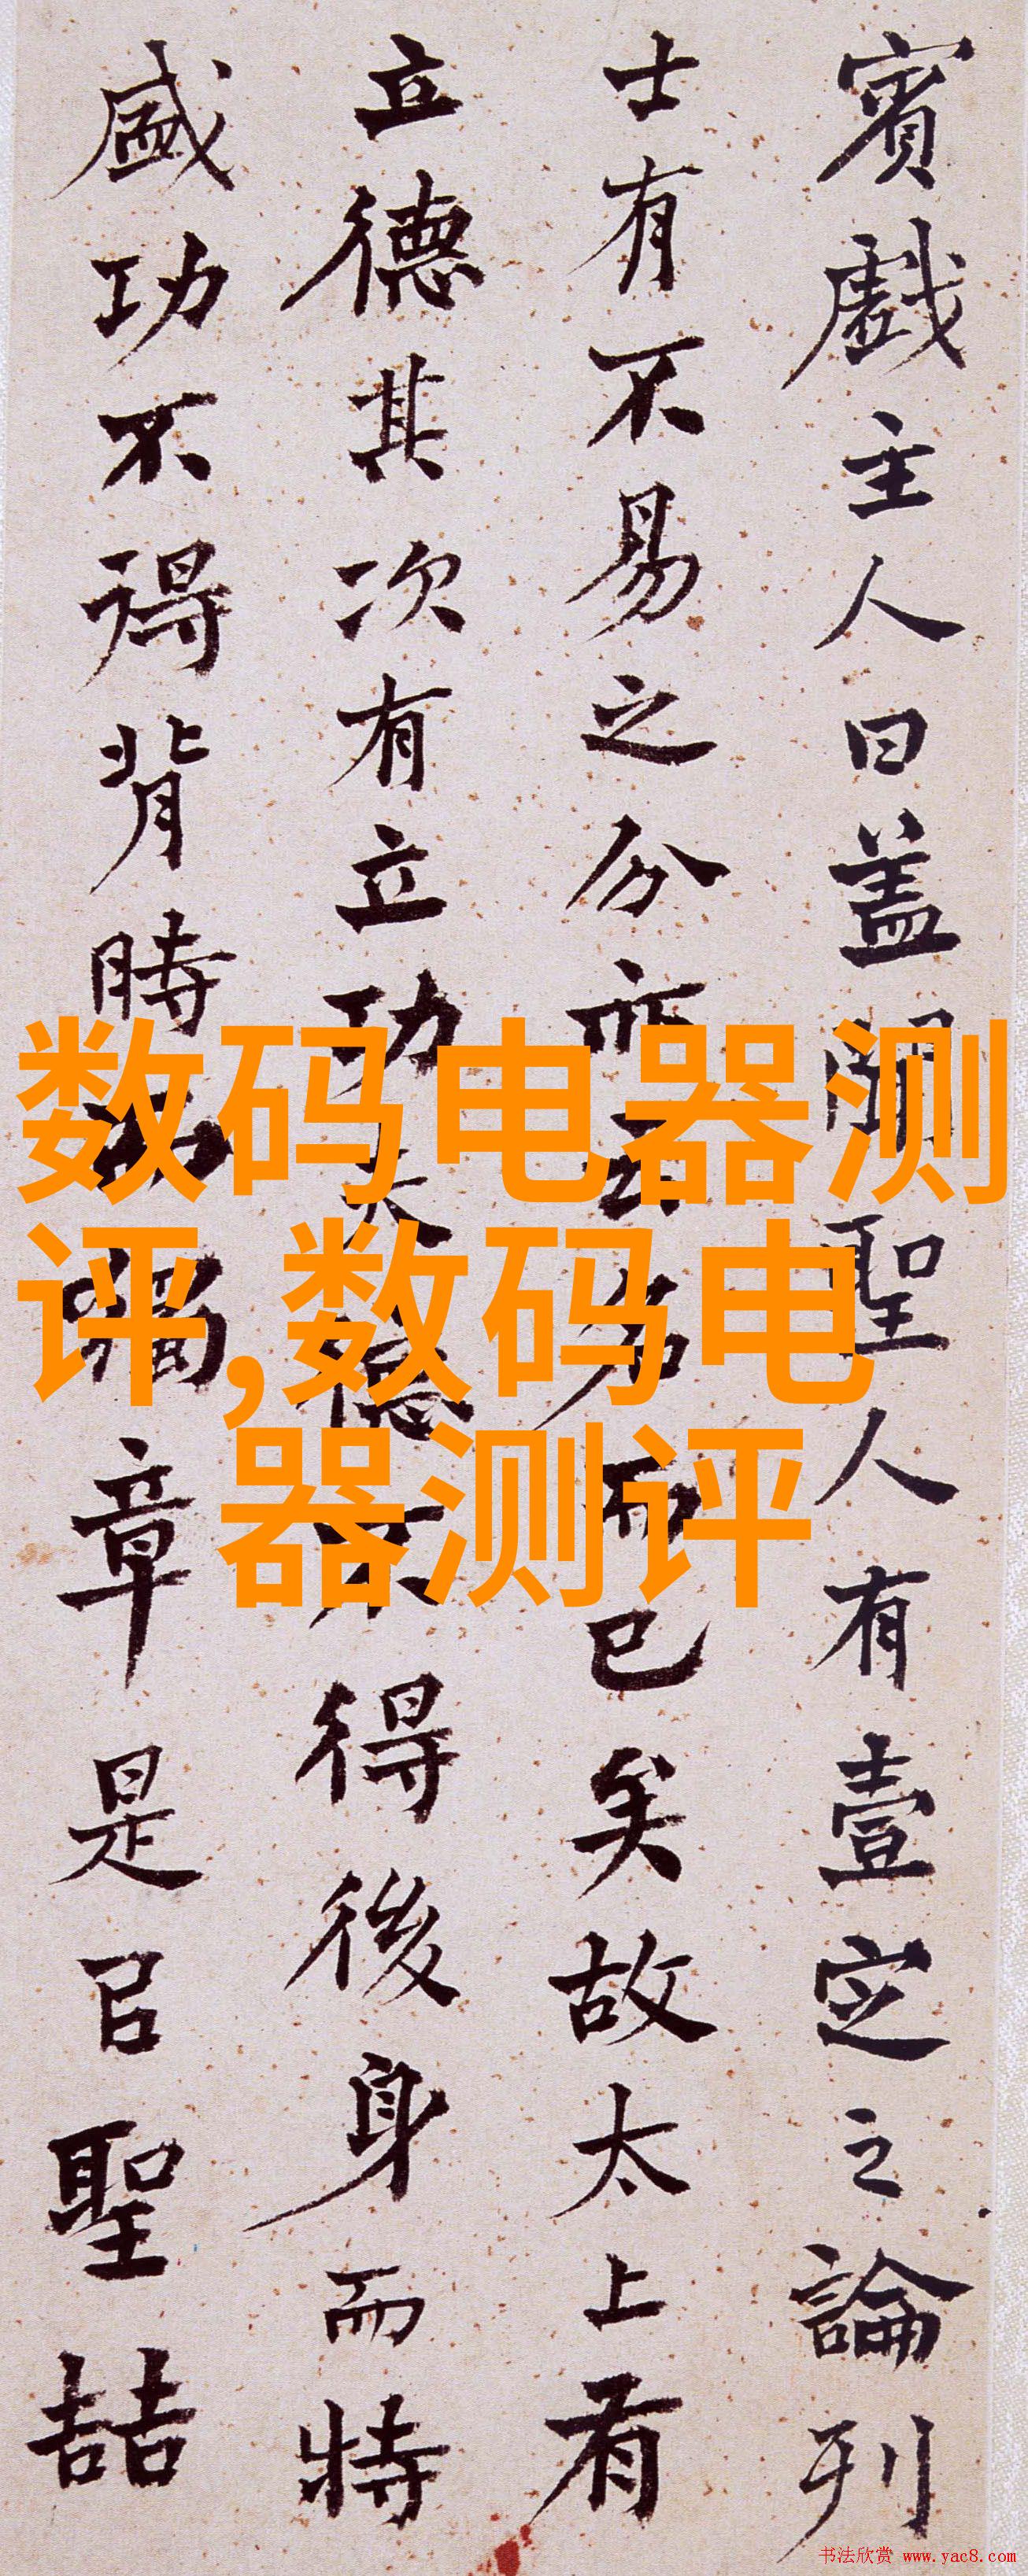 賓戲主人曰盖聞聖人有壹定之論列
士有不易之分亦云名而已矣故太上有
立德其次有立功夫德不得後身而特
盛功不得背時而獨章是㠯聖喆
数码电器测
评,数码电
器测评
书法欣赏 www.yac8.com